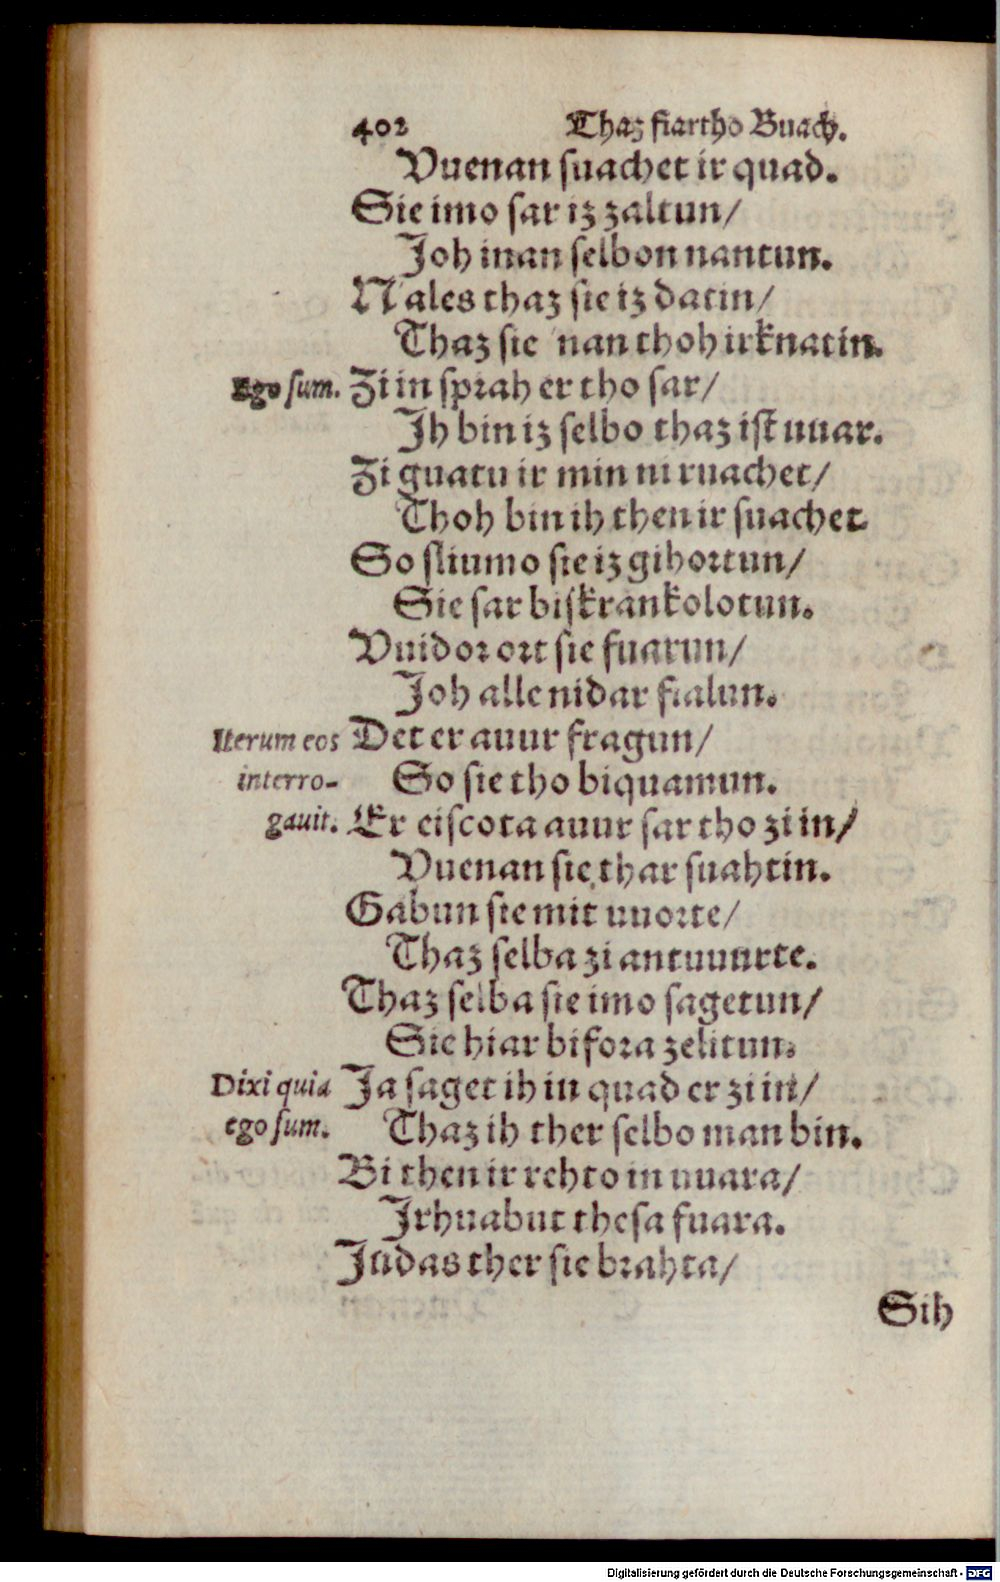 402 Thaz fiartho Buach.
Vuenan suachet ir quad.
Sie imo sar iz zaltun/
Joh inan selbon nantun.
Nales thaz sie iz datin/
Thaz sie nan thoh irknatin.
Ego sum. Zi in sprah er tho sar/
Jh bin iz selbo thaz ist uuar.
Zi guatu ir min ni ruachet/
Thoh bin ih then ir suachet.
So sliumo sie iz gihortun/
Sie sar biskrankolotun.
Vuidorort sie fuarun/
Joh alle nidar fialun.
Iterum eos Det er auur fragun/
interro- So sie tho biquamun.
gauit. Er eiscota auur sar tho zi in/
Vuenan sie thar suahtin.
Gabun sie mit uuorte/
Thaz selba zi antuuurte.
Thaz selba sie imo sagetun/
Sie hiar bifora zelitun.
Dixi quia Ja saget ih in quad er zi in/
ego sum. Thaz ih ther selbo man bin.
Bi then ir rehto in uuara/
Jrhuabut thesa fuara.
Judas ther sie brahta/
Sih
Digitalisierung gefördert durch die Deutsche Forschungsgemeinschaft - DFG